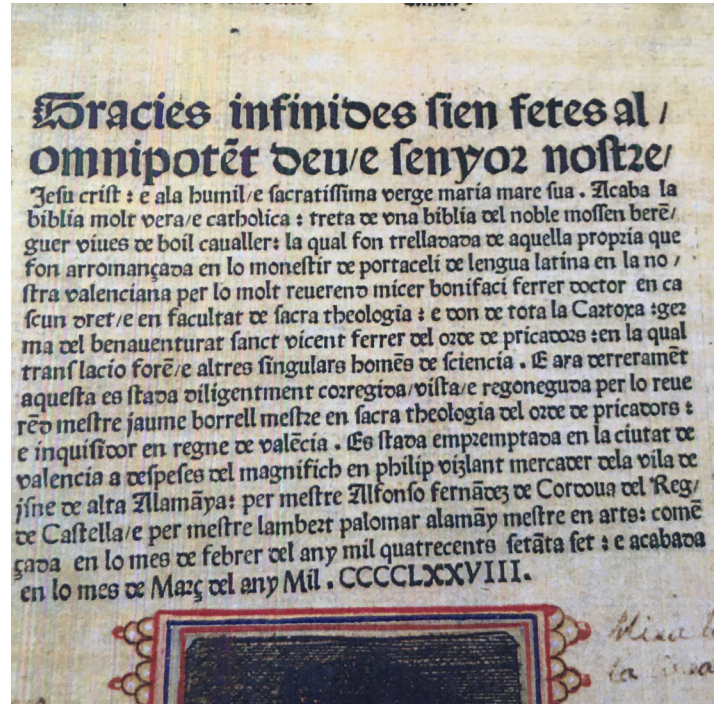 Gracies infinides sien fetes al /
omnipotēt deu/e senyor nostre/
Jesu crist : e ala humil/e sacratissima verge maria mare sua . Acaba la
biblia molt vera/e catholica : treta de vna biblia del noble mossen berē/
guer viues de boil caualler: la qual fon trelladada de aquella propria que
fon arromançada en lo monestir de portaceli de lengua latina en la no /
stra valenciana per lo molt reuerend micer bonifaci ferrer doctor en ca
scun dret/e en facultat de sacra theologia : e don de tota la Cartoxa :ger
ma del benauenturat sanct vicent ferrer del orde de pricadors :en la qual
translacio forē/e altres singulars homēs de sciencia . E ara derreramēt
aquesta es stada diligentment corregida/vista/e regoneguda per lo reue
rēd mestre jaume borrell mestre en sacra theologia del orde de pricadors :
e inquisidor en regne de valēcia . Es stada empremptada en la ciutat de
valencia a despeses del magnifich en philip vizlant mercader dela vila de
jsne de alta Alamāya: per mestre Alfonso fernādez de Cordoua del Reg/
de Castella/e per mestre lambert palomar alamāy mestre en arts: comē
çada en lo mes de febrer del any mil quatrecents setāta set : e acabada
en lo mes de Març del any Mil . CCCCLXXVIII.